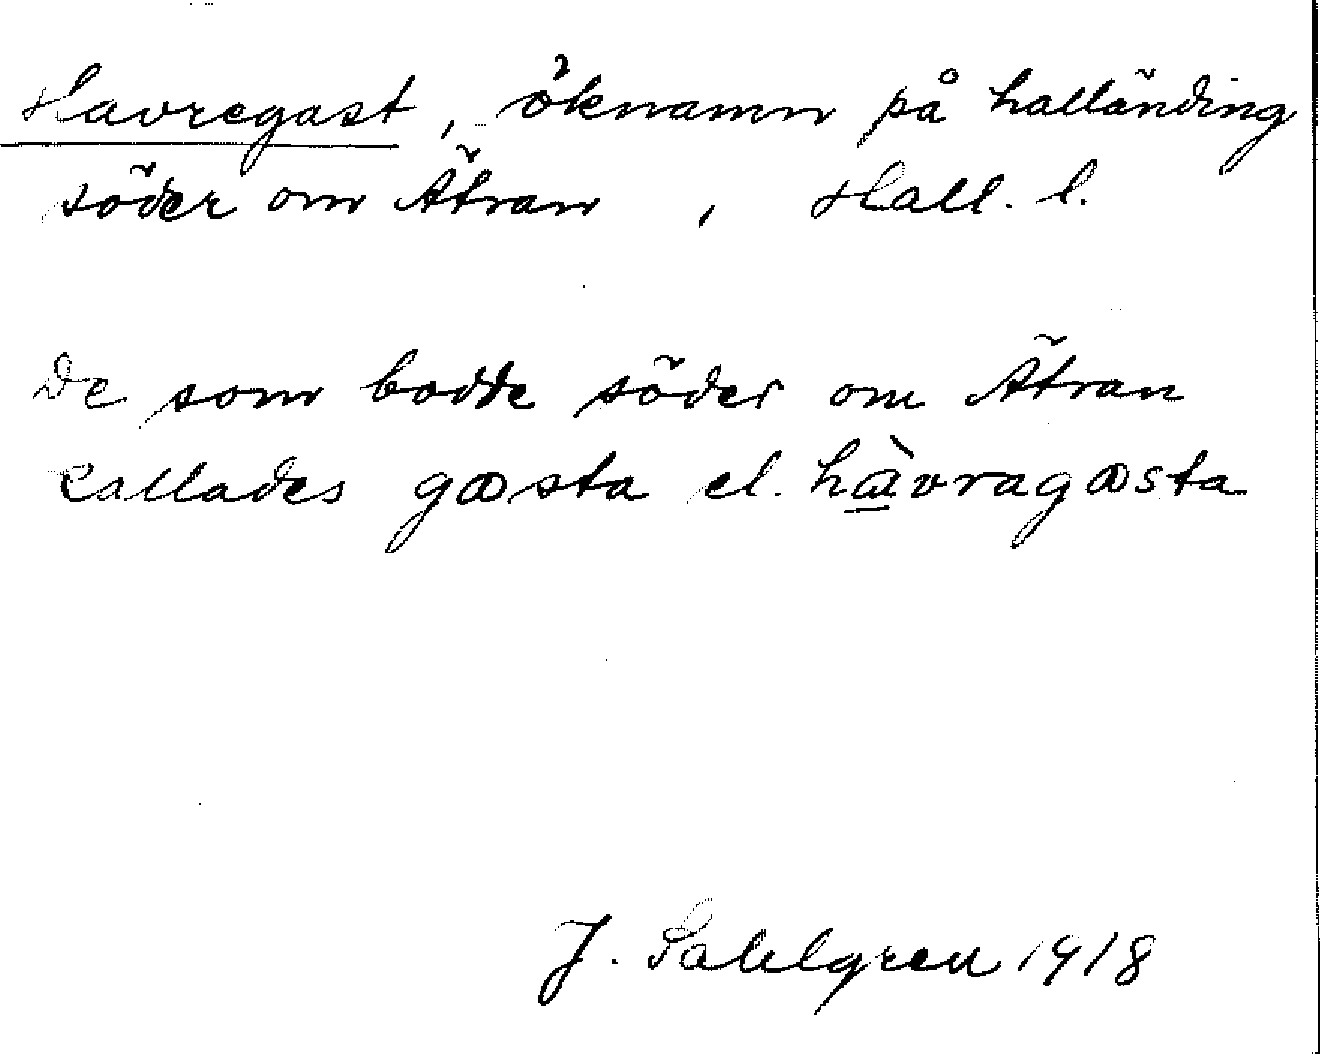 Havregast, öknamn på halländing
söder om Ätran, Hall. l.
De som bodde söder om Ätran
kallades gasta el. hàvragasta
J. Sahlgren 1918